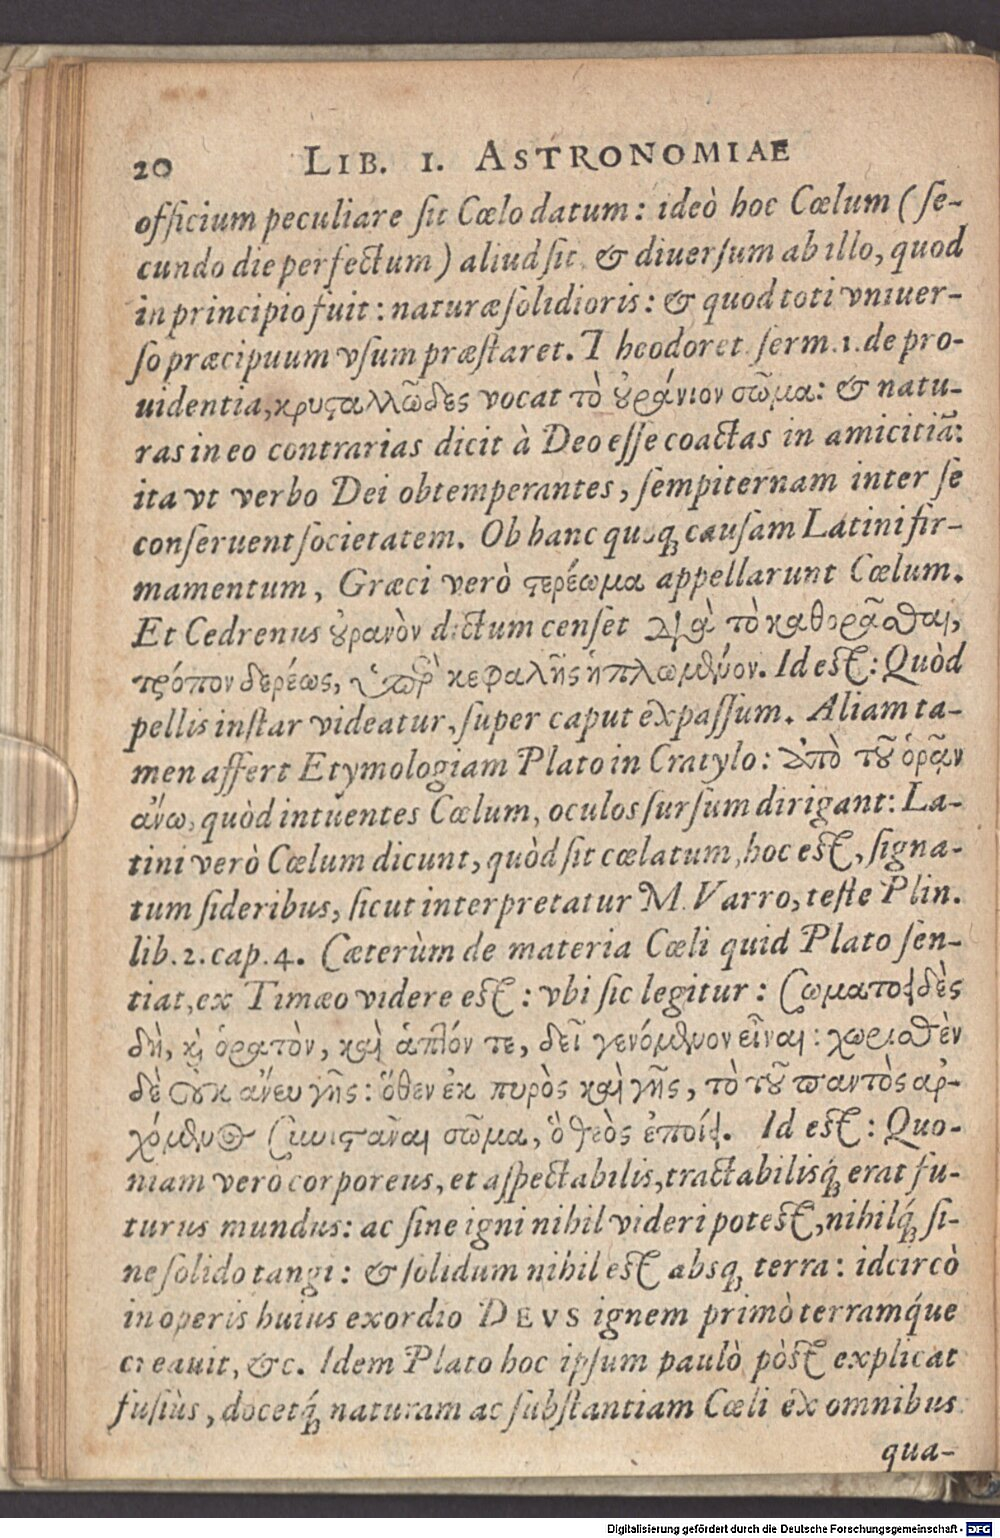 20 LIB. I. ASTRONOMIAE
officium peculiare ſit Cœlo datum: ideò hoc Cœlum (ſe-
cundo die perfectum) aliud ſit & diuerſum ab illo, quod
in principio fuit: naturæ ſolidioris: & quod toti vniuer-
ſo præcipuum vſum præſtaret. Theodoret. ſerm. 1. de pro-
uidentia, κρυϛαλλῶδες vocat τὸ ȣ̓ράνιον σῶμα: & natu-
ras in eo contrarias dicit à Deo eſſe coactas in amicitiã:
ita vt verbo Dei obtemperantes, ſempiternam inter ſe
conſeruent ſocietatem. Ob hanc quoq; cauſam Latini fir-
mamentum, Græci verò ϛερέωμα appellarunt Cœlum.
Et Cedrenus ȣ̓ρανὸν dictum cenſet διὰ τὸ καθορᾶσθαι,
τρόπον δερέως, ὑπὲρ κεφαλῆς ἡπλωμένον. Id eſt: Quòd
pellis inſtar videatur, ſuper caput expaſſum. Aliam ta-
men affert Etymologiam Plato in Cratylo: ἀπὸ τȣ͂ ὁρᾶν
ἄνω, quòd intuentes Cœlum, oculos ſurſum dirigant: La-
tini verò Cœlum dicunt, quòd ſit cœlatum, hoc eſt, ſigna-
tum ſideribus, ſicut interpretatur M. Varro, teſte Plin.
lib. 2. cap. 4. Cæterùm de materia Cœli quid Plato ſen-
tiat, ex Timæo videre eſt: vbi ſic legitur: Σωματοειδὲς
δὴ, κỳ ὁρατὸν, καὶ ἁπτόν τε, δεῖ γενόμενον εἶναι: χωρισθὲν
δὲ οὐκ ἄνευ γῆς: ὅθεν ἐκ πυρὸς καὶ γῆς, τὸ τȣ͂ παντὸς αρ-
χόμενος συνιϛάναι σῶμα, ὁ θεὸς ἐποίει. Id eſt: Quo-
niam verò corporeus, et aſpectabilis, tractabilisq́; erat fu-
turus mundus: ac ſine igni nihil videri poteſt, nihilq́; ſi-
ne ſolido tangi: & ſolidum nihil eſt absq; terra: idcircò
in operis huius exordio DEVS ignem primò terramq́ue
creauit, &c. Idem Plato hoc ipſum paulò pòſt explicat
fuſiùs, docetq́; naturam ac ſubſtantiam Cœli ex omnibus
qua-
Digitalisierung gefördert durch die Deutsche Forschungsgemeinschaft - DFG